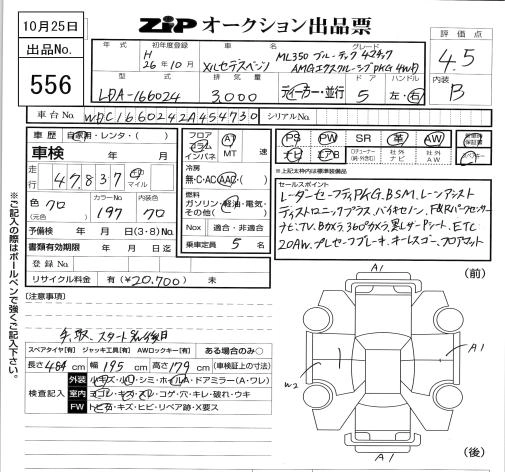 10月25日
ZIP オークション出品票
出品No.
556
評価点
4.5
内装
B
年式 初年度登録 車名 グレード
H 26年10月 メルセデスベンツ ML350 ブルーテック 4マチック
AMGエクスクルーシブPKG 4WD
型式 排気量 ドア ハンドル
LDA-166024 3,000 ディーラー・並行 5 左・右
車台No. WDC1660242A454730 シリアルNo.
車歴 自家用・レンタ・( )
車検 年 月
走行 47,837 km マイル
色 クロ (元色) カラーNo. 197 内装色 クロ
予備検 年 月 日(3・8)No.
書類有効期限 年 月 日迄
登録No.
リサイクル料金 有(¥20,700) 未
フロア フラム インパネ AT MT 速
冷房 無・C・AC・AAC・( )
燃料 ガソリン・軽油・電気・その他( )
Nox 適合・非適合
乗車定員 5 名
PS PW SR 革 AW
ナビ エアB ＴＶチューナー(純・外含む) 社外ナビ 社外AW
※上記太枠内は標準装備品
セールスポイント
レーダーセーフティPKG.BSM.レーンアシスト
ディストロニックプラス.バイキセノン.F&Rパークセンサー
ナビ.TV.Bカメラ.360°カメラ.黒レザーPシート.ETC
20AW.プレセーフブレーキ.キーレスゴー.フロアマット
【注意事項】
手、取、スタート
スペアタイヤ【有】 ジャッキ工具【有】 AWロックキー【有】 ある場合のみ〇
長さ 484 cm 幅 195 cm 高さ 179 cm (車検証上の寸法)
検査記入
外装 小キズ・小凹・シミ・ホイルA・ドアミラー(A・ワレ)
室内 ヨゴレ・キズ・スレ・コゲ・穴・キレ・破れ・ウキ
FW トビ石・キズ・ヒビ・リペア跡・X要ス
【注意事項】
(前)
A1
A1
W2
A1
(後)
※ご記入の際はボールペンで強くご記入下さい。